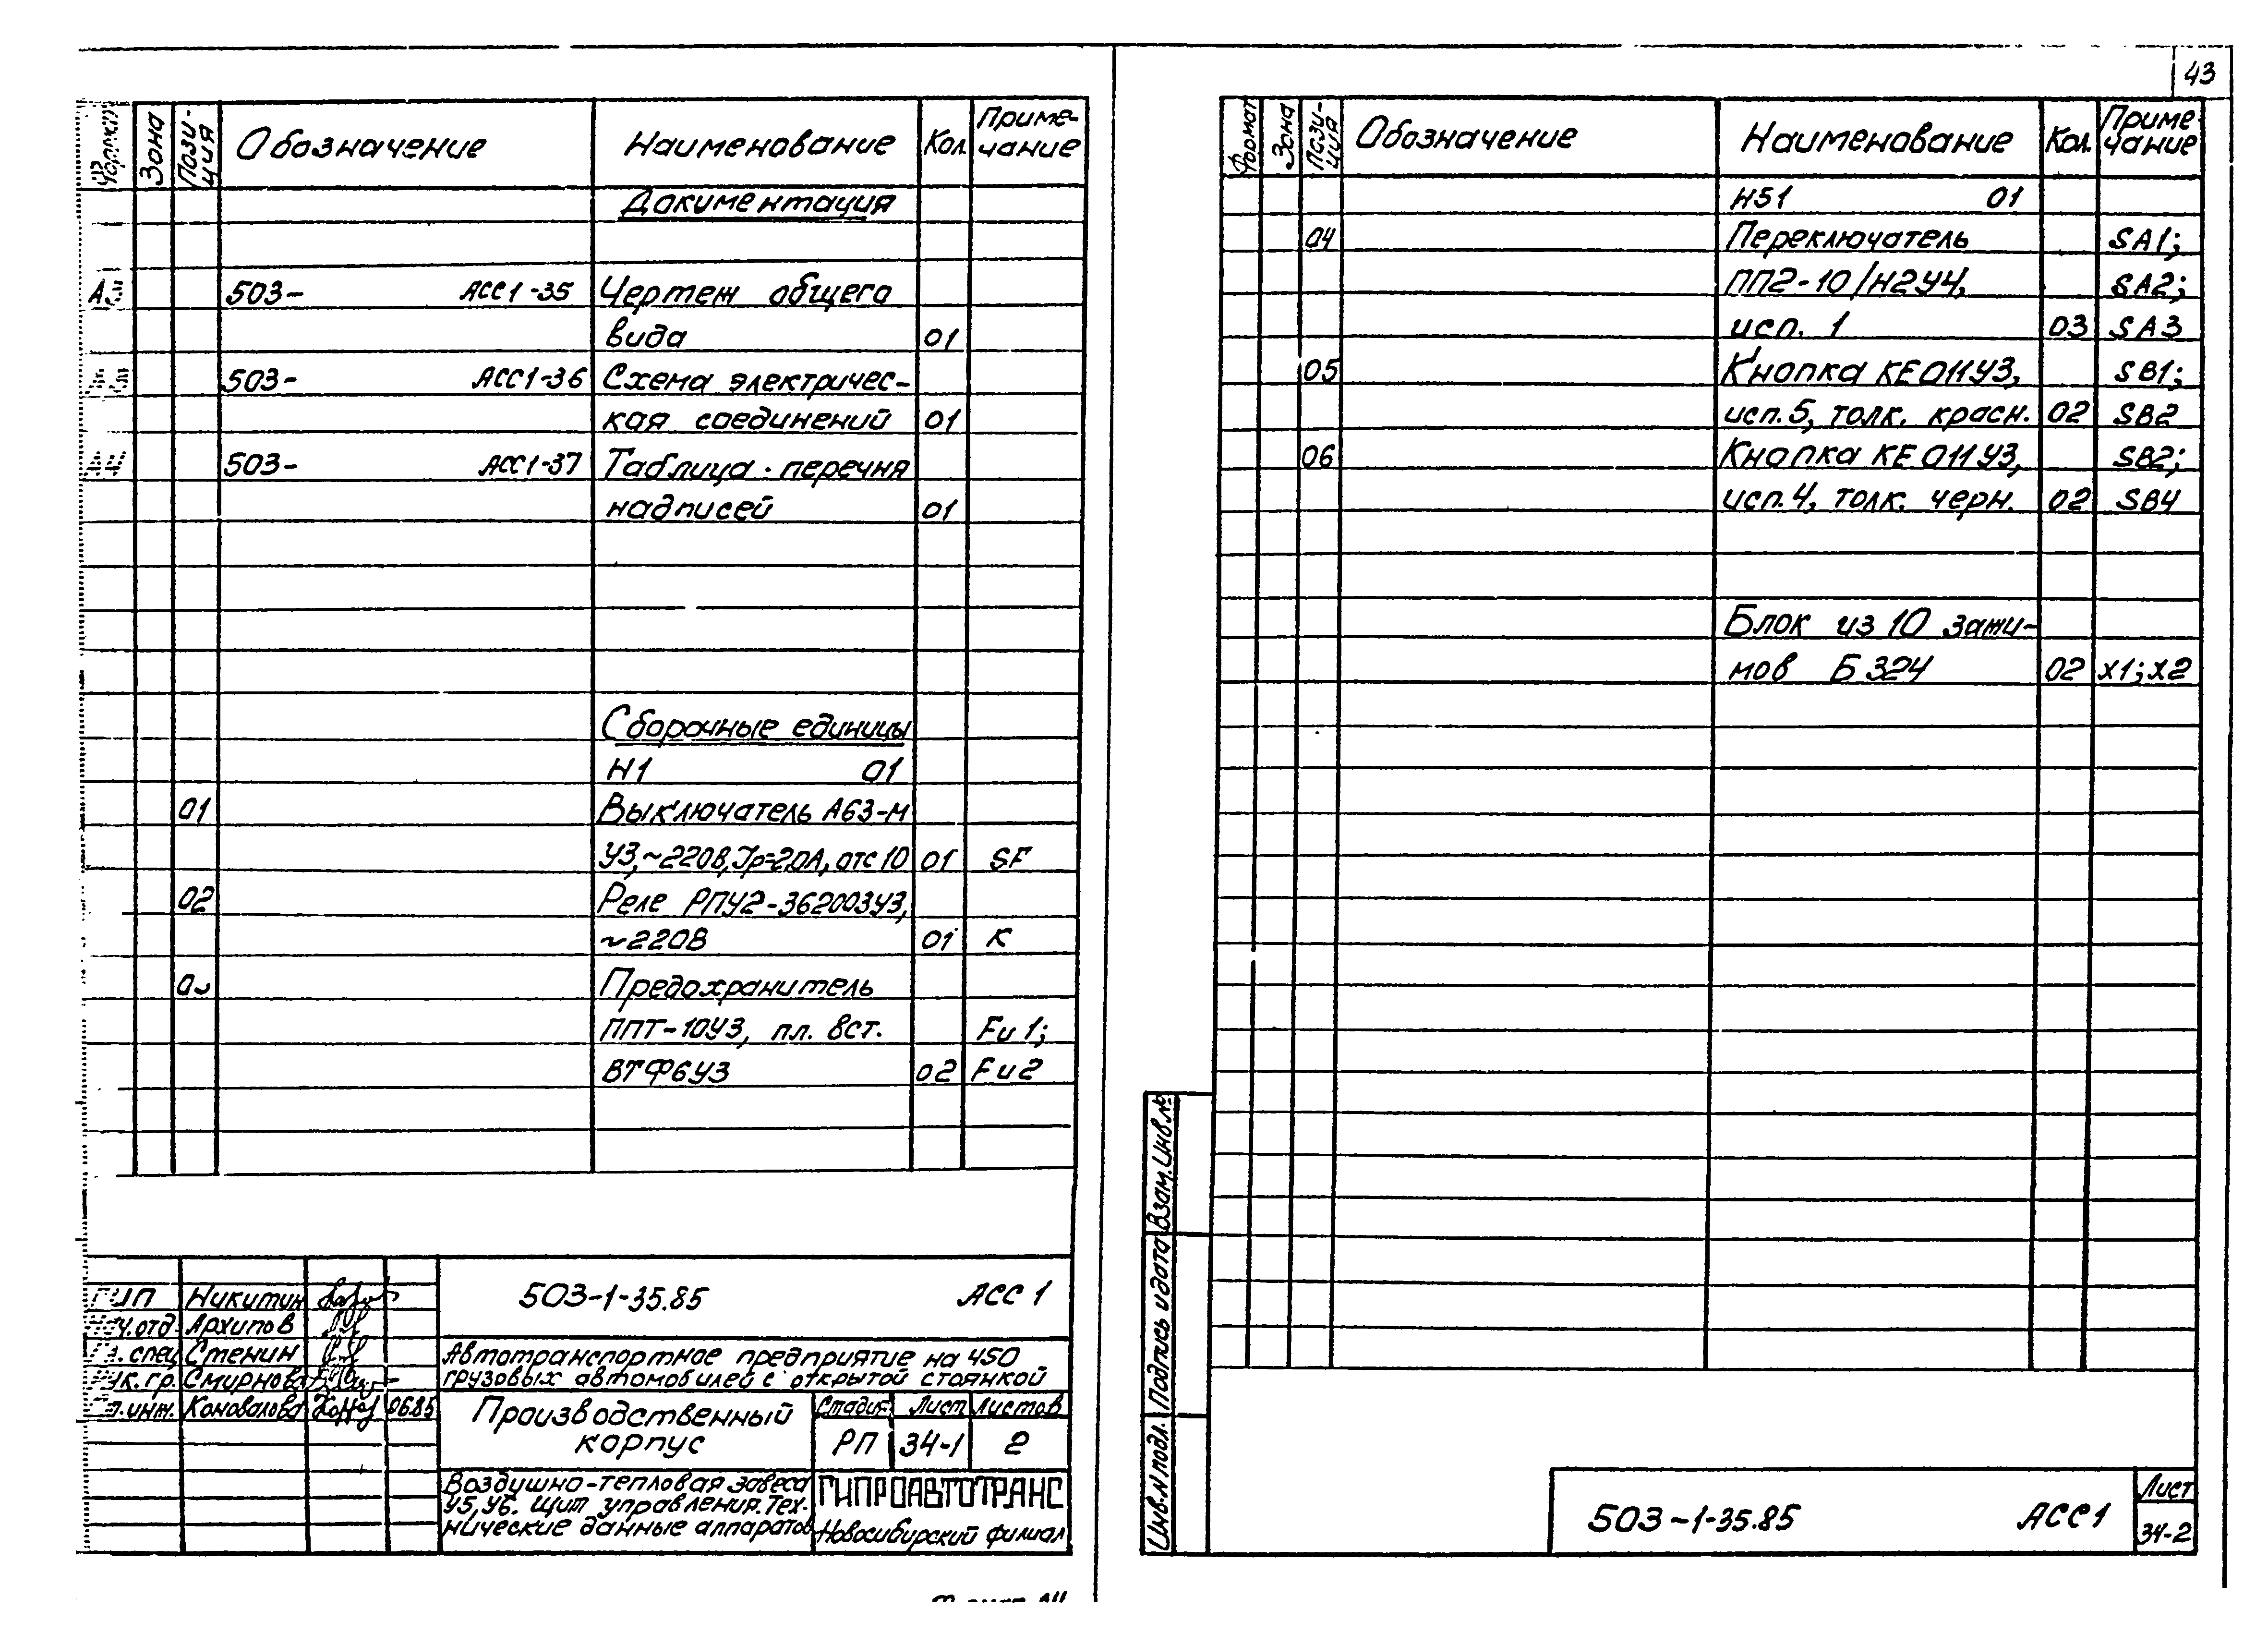 43
Формат Зона Пози-ция Обозначение Наименование Кол. Приме-чание
Документация
А3 503- АСС1-35 Чертеж общего
вида 01
А3 503- АСС1-36 Схема электричес-
кая соединений 01
А4 503- АСС1-37 Таблица перечня
надписей 01
Сборочные единицы
Н1 01
01 Выключатель А63-М
У3,~220В,Iр=2,0А, отс 10 01 SF
02 Реле РПУ2-362003У3,
~220В 01 К
Предохранитель
ППТ-10У3, пл. вст. Fu1;
ВТФ6У3 02 Fu2
ГИП Никитин
Нач.отд. Архипов
Гл. спец Стенин
Рук. гр. Смирнова
Коновалова 06.85
503-1-35.85 АСС 1
Автотранспортное предприятие на 450
грузовых автомобилей с открытой стоянкой
Производственный
корпус
Стадия Лист Листов
РП 34-1 2
Воздушно-тепловая завеса
У5,У6. Щит управления. Тех-
нические данные аппаратов
ГИПРОАВТОТРАНС
Новосибирский филиал
Формат Зона Пози-ция Обозначение Наименование Кол. Приме-чание
Н51 01
04 Переключатель SA1;
ПП2-10/Н2У4, SA2;
исп. 1 03 SA3
05 Кнопка КЕ011У3, SB1;
исп.5, толк. красн. 02 SB2
06 Кнопка КЕ011У3, SB2;
исп.4, толк. черн. 02 SB4
Блок из 10 зажи-
мов Б324 02 Х1;Х2
Взам.Инв.№
Подпись и дата
Инв.N подл.
503-1-35.85 АСС1
Лист
34-2